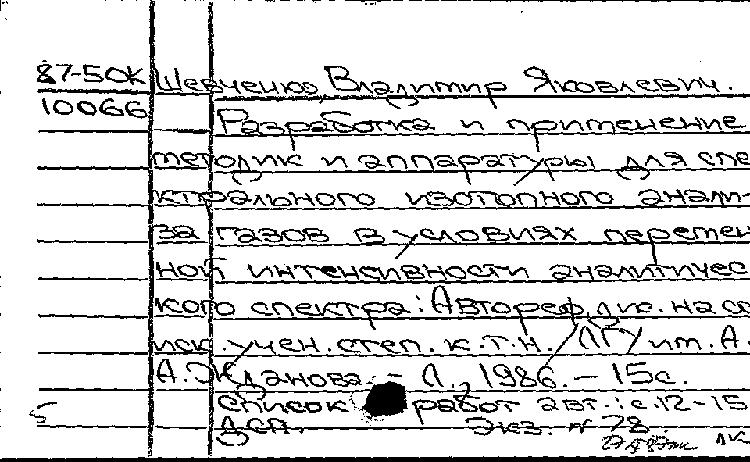 87-50К Шевченко, Владимир Яковлевич.
10066 Разработка и применение
методик и аппаратуры для спе-
ктрального изотопного анали-
за газов в условиях перемен-
ной интенсивности аналитичес-
кого спектра: Автореф. дис. на со
иск. учен. степ. к.т.н. / ЛГУ им. А.
А. Жданова. - Л., 1986. - 15с.
Список работ авт.: с.12-15
ДСП. Экз. № 78.
ЛК